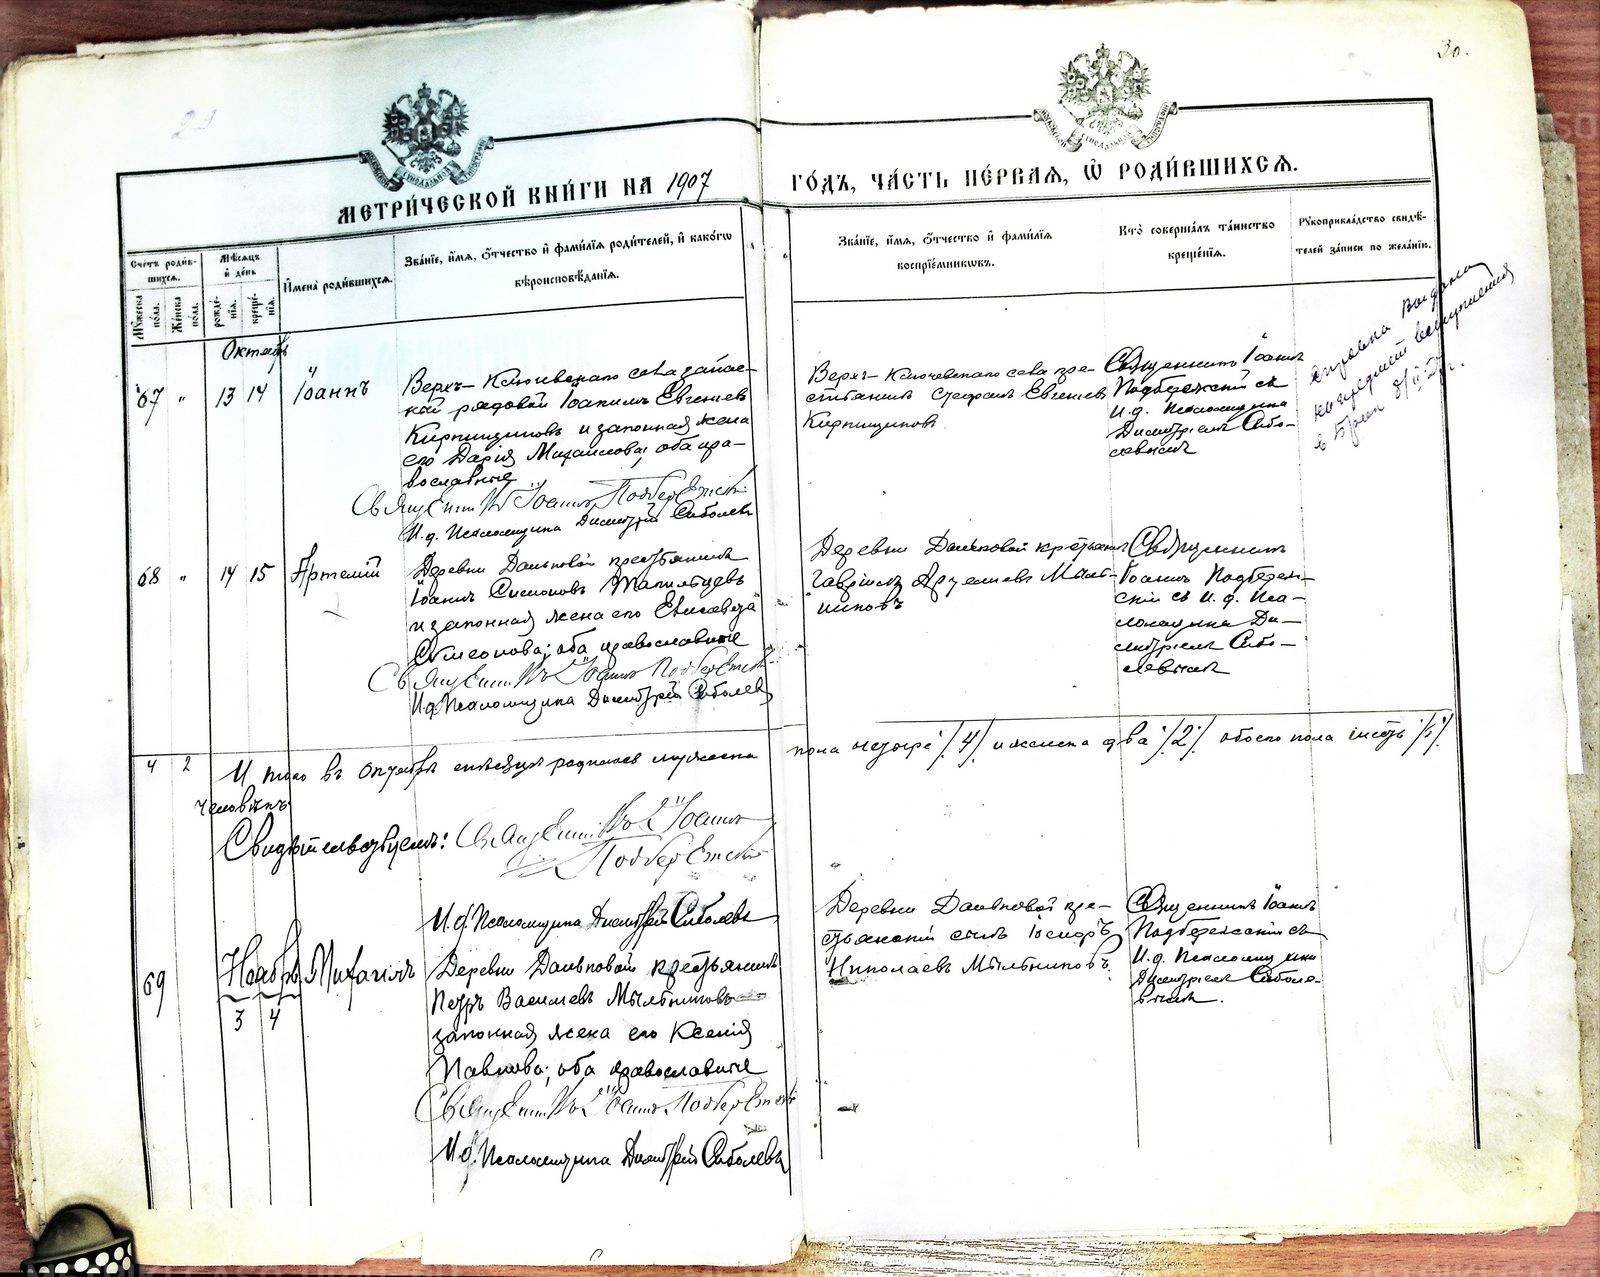 29
30.
МЕТРИ́ЧЕСКОЙ КНИ́ГИ НА 1907
ГО́ДЪ, ЧА́СТЬ ПЕ́РВАЯ, Ѿ РОДИ́ВШИХСЯ.
Счетъ роди́в-
шихся.
Му́жеска
по́ла.
Же́нска
по́ла.
Мѣ́сяцъ
и де́нь
рожде́-
нія.
креще́-
нія.
Имена̀ роди́вшихся.
Зва́ніе, и́мя, о́тчество и фами́лія роди́телей, и како́гѡ
вѣроисповѣ́данія.
Зва́ніе, и́мя, о́тчество и фами́лія
воспріе́мникѡвъ.
Кто̀ соверша́лъ та́инство
креще́нія.
Рукоприкла́дство свидѣ́-
телей за́писи по жела́нію.
Октябрь
67 " 13 14 Іоаннъ
Верхъ-Ключевскаго села запас-
ной рядовой Іоакимъ Евгеніевъ
Кирпищиковъ и законная жена
его Дарія Михаилова; оба пра-
вославные
Священникъ Іоаннъ Подбережскій
И.д. Псаломщика Димитрій Соболевъ
Верхъ-Ключевскаго села кре-
стьянинъ Стефанъ Евгеніевъ
Кирпищиковъ
Священникъ Іоаннъ
Подбережскій съ
И.д. Псаломщика
Димитріемъ Собо-
левымъ
Справка выдана
в Брак
68 " 14 15 Артемій
Деревни Даньковой крестьянинъ
Іоаннъ Симоновъ
и законная жена его Елисавета
Симеонова; оба православные
Священникъ Іоаннъ Подбережскій
И.д. Псаломщика Димитрій Соболевъ
Деревни Даньковой крестьянинъ
Гавріилъ Артемьевъ Мыль-
никовъ
Священникъ
Іоаннъ Подбереж-
скій съ И.д. Пса-
ломщика Ди-
митріемъ Собо-
левымъ
4 2 Итого въ Октябрѣ мѣсяцѣ родилось мужеска
пола четыре /4/ и женска два /2/ обоего пола шесть /6/
человѣкъ
Свидѣтельствуемъ: Священникъ Іоаннъ
Подбережскій
И.д. Псаломщика Димитрій Соболевъ
Ноябрь
69 3 4 Михаилъ
Деревни Даньковой крестьянинъ
Петръ Васильевъ Мыльниковъ
законная жена его Ксенія
Павлова; оба православные
Священникъ Іоаннъ Подбережскій
И.д. Псаломщика Димитрій Соболевъ
Деревни Даньковой кре-
стьянскій сынъ Іосифъ
Николаевъ Мыльниковъ
Священникъ Іоаннъ
Подбережскій съ
И.д. Псаломщика
Димитріемъ Соболе-
вымъ.